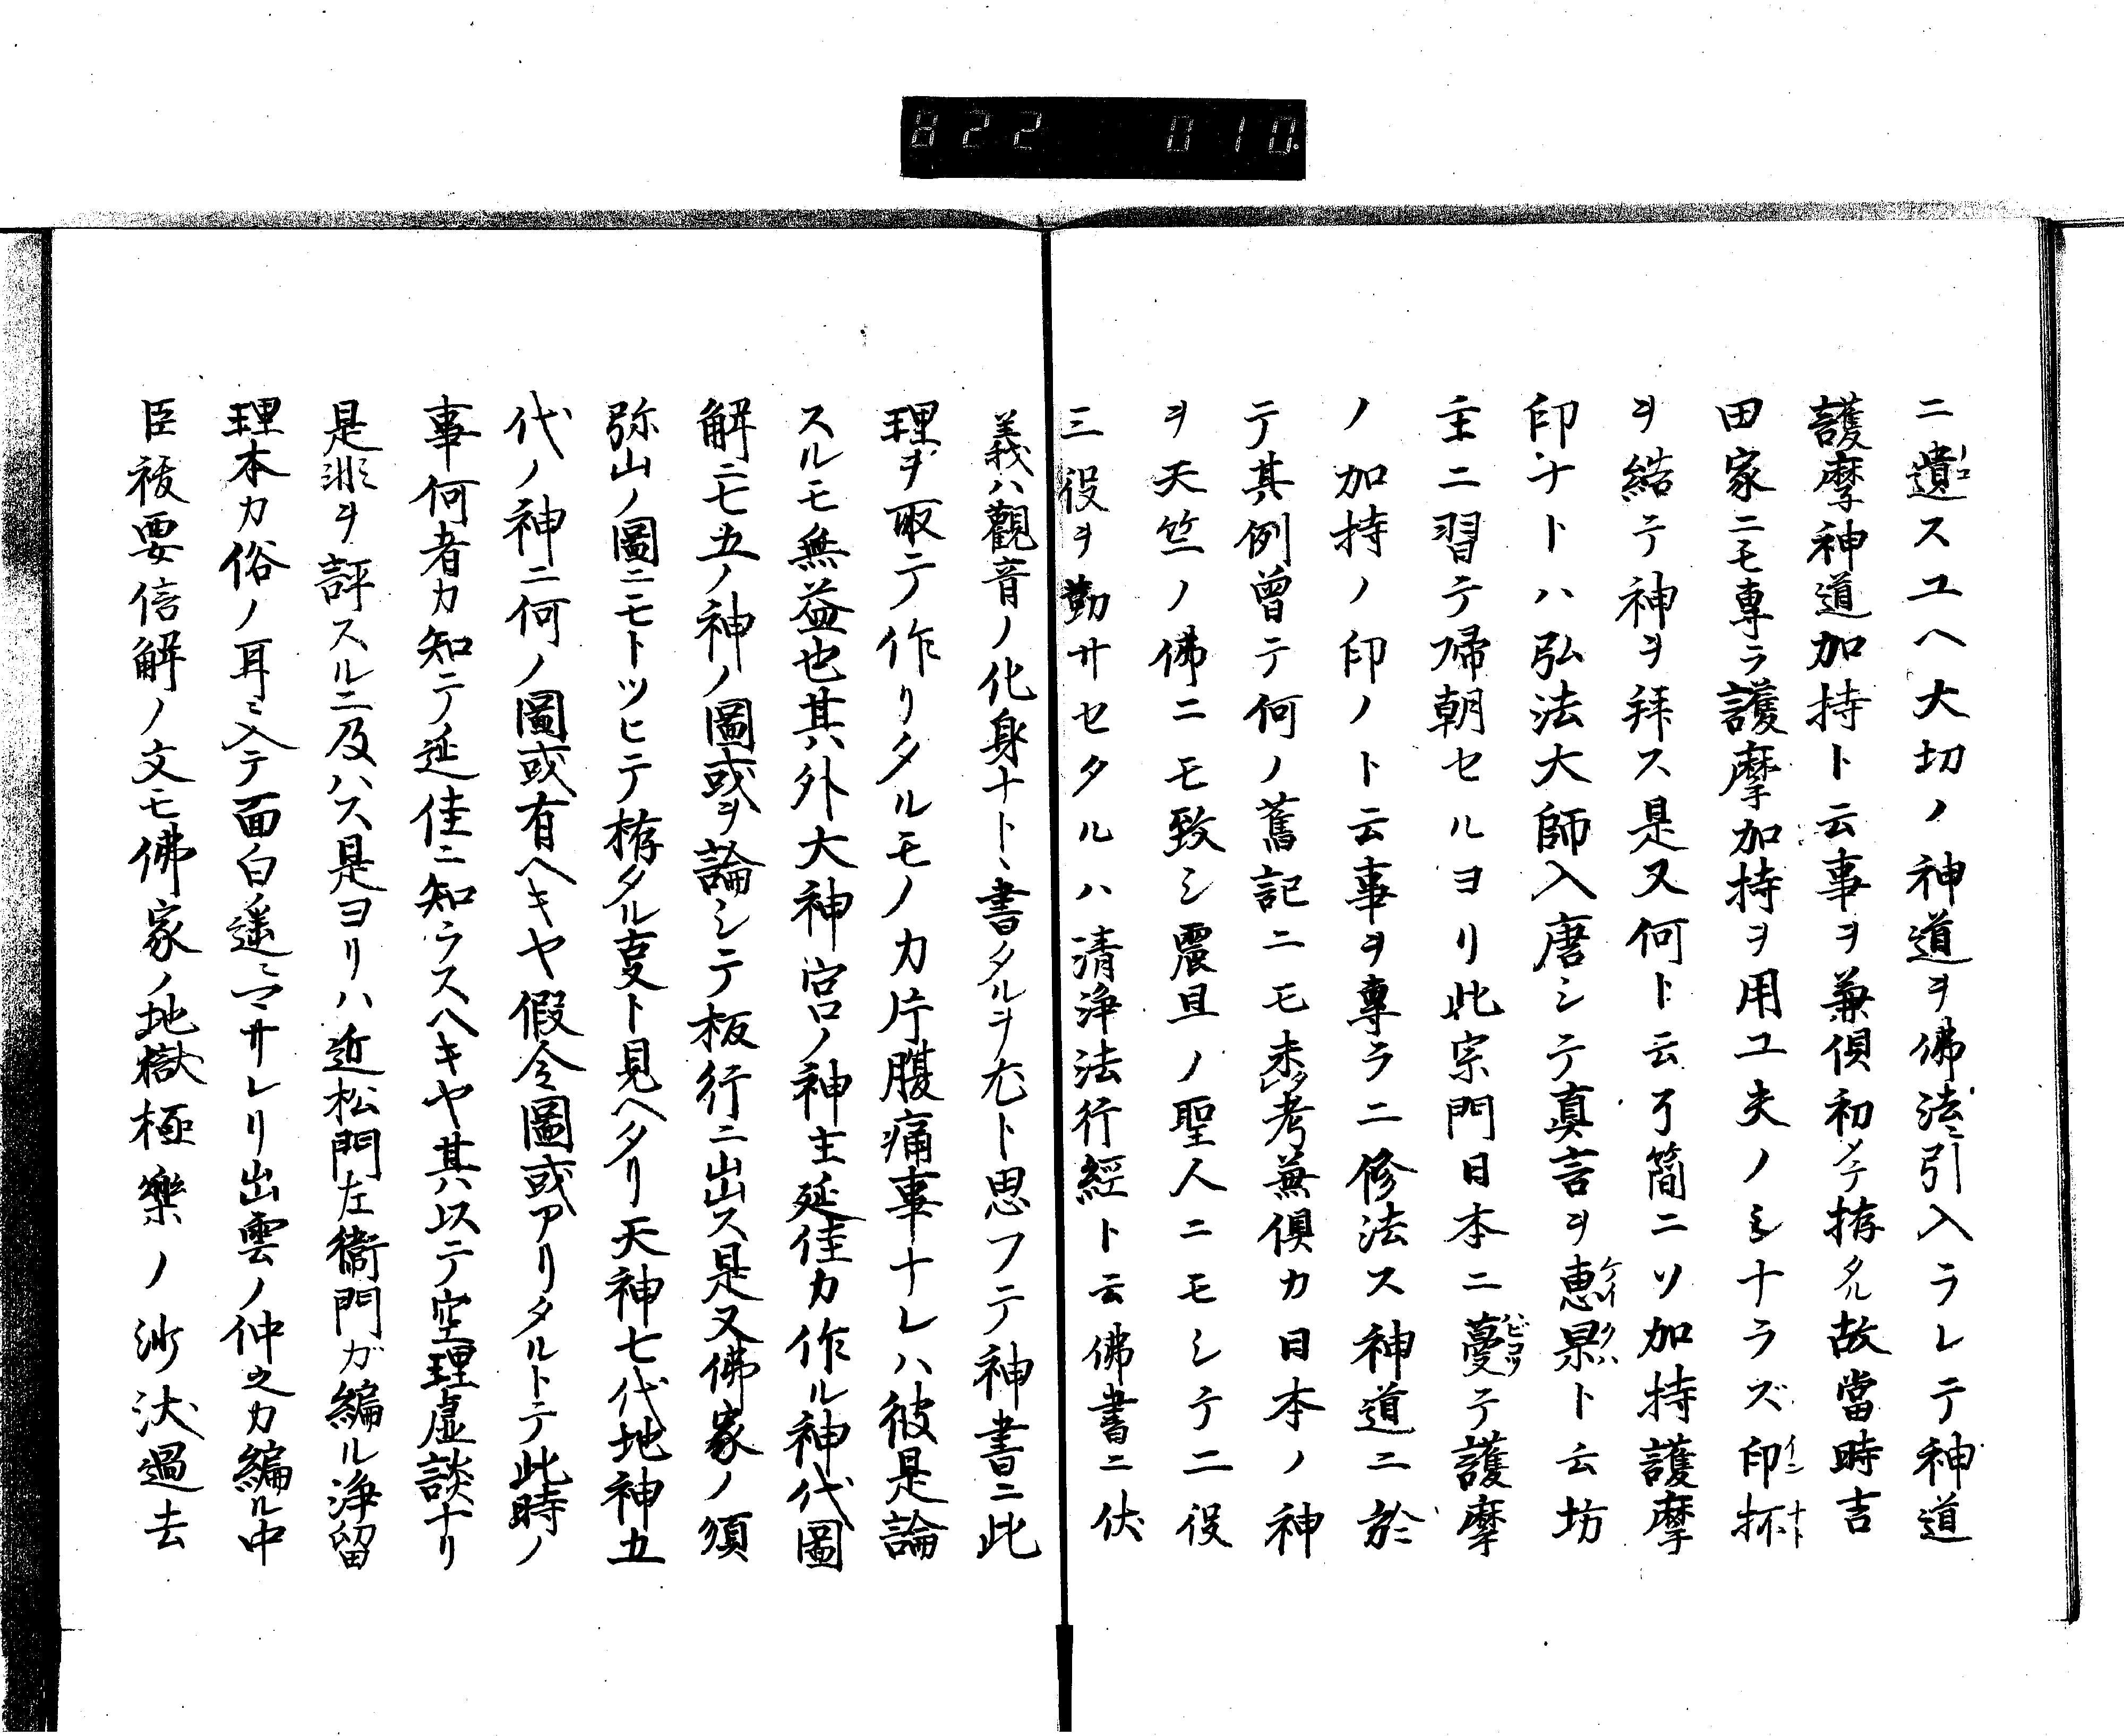 822 010
ニ遺スユヘ大切ノ神道ヲ佛法ニ引入ラレテ神道
護摩神道加持ト云事ヲ兼倶初メテ拵タル故當時吉
田家ニモ専ラ護摩加持ヲ用ユ夫ノミナラズ印抔
ヲ結テ神ヲ拜ス是又何ト云了簡ニソ加持護摩
印ナトハ弘法大師入唐シテ真言ヲ恵果ト云坊
主ニ習テ帰朝セルヨリ此宗門日本ニ蔓テ護摩
ノ加持ノ印ノト云事ヲ専ラニ修法ス神道ニ於
テ其例曾テ何ノ舊記ニモ未考兼倶カ日本ノ神
ヲ天竺ノ佛ニモ致シ震旦ノ聖人ニモシテ二役
三役ヲ勤サセタルハ清浄法行經ト云佛書ニ伏
義ハ觀音ノ化身ナトヽ書タルヲ尤ト思フテ神書ニ此
理ヲ取テ作リタルモノカ片腹痛事ナレハ彼是論
スルモ無益也其外大神宮ノ神主延佳カ作ル神代圖
解ニ七五ノ神ノ圖或ヲ論シテ板行ニ出ス是又佛家ノ須
弥山ノ圖ニモトツヒテ拵タル叓ト見ヘタリ天神七代地神五
代ノ神ニ何ノ圖或有ヘキヤ假令圖或アリタルトテ此時ノ
事何者カ知テ延佳ニ知ラスヘキヤ其ハ以テ空理虚談ナリ
是非ヲ評スルニ及ハス是ヨリハ近松門左衛門ガ編ル浄留
理本カ俗ノ耳ニ入テ面白ノ遥ニマサレリ出雲ノ仲之カ編ル中
臣祓要信解ノ文モ佛家ノ地獄極樂ノ沙汰過去